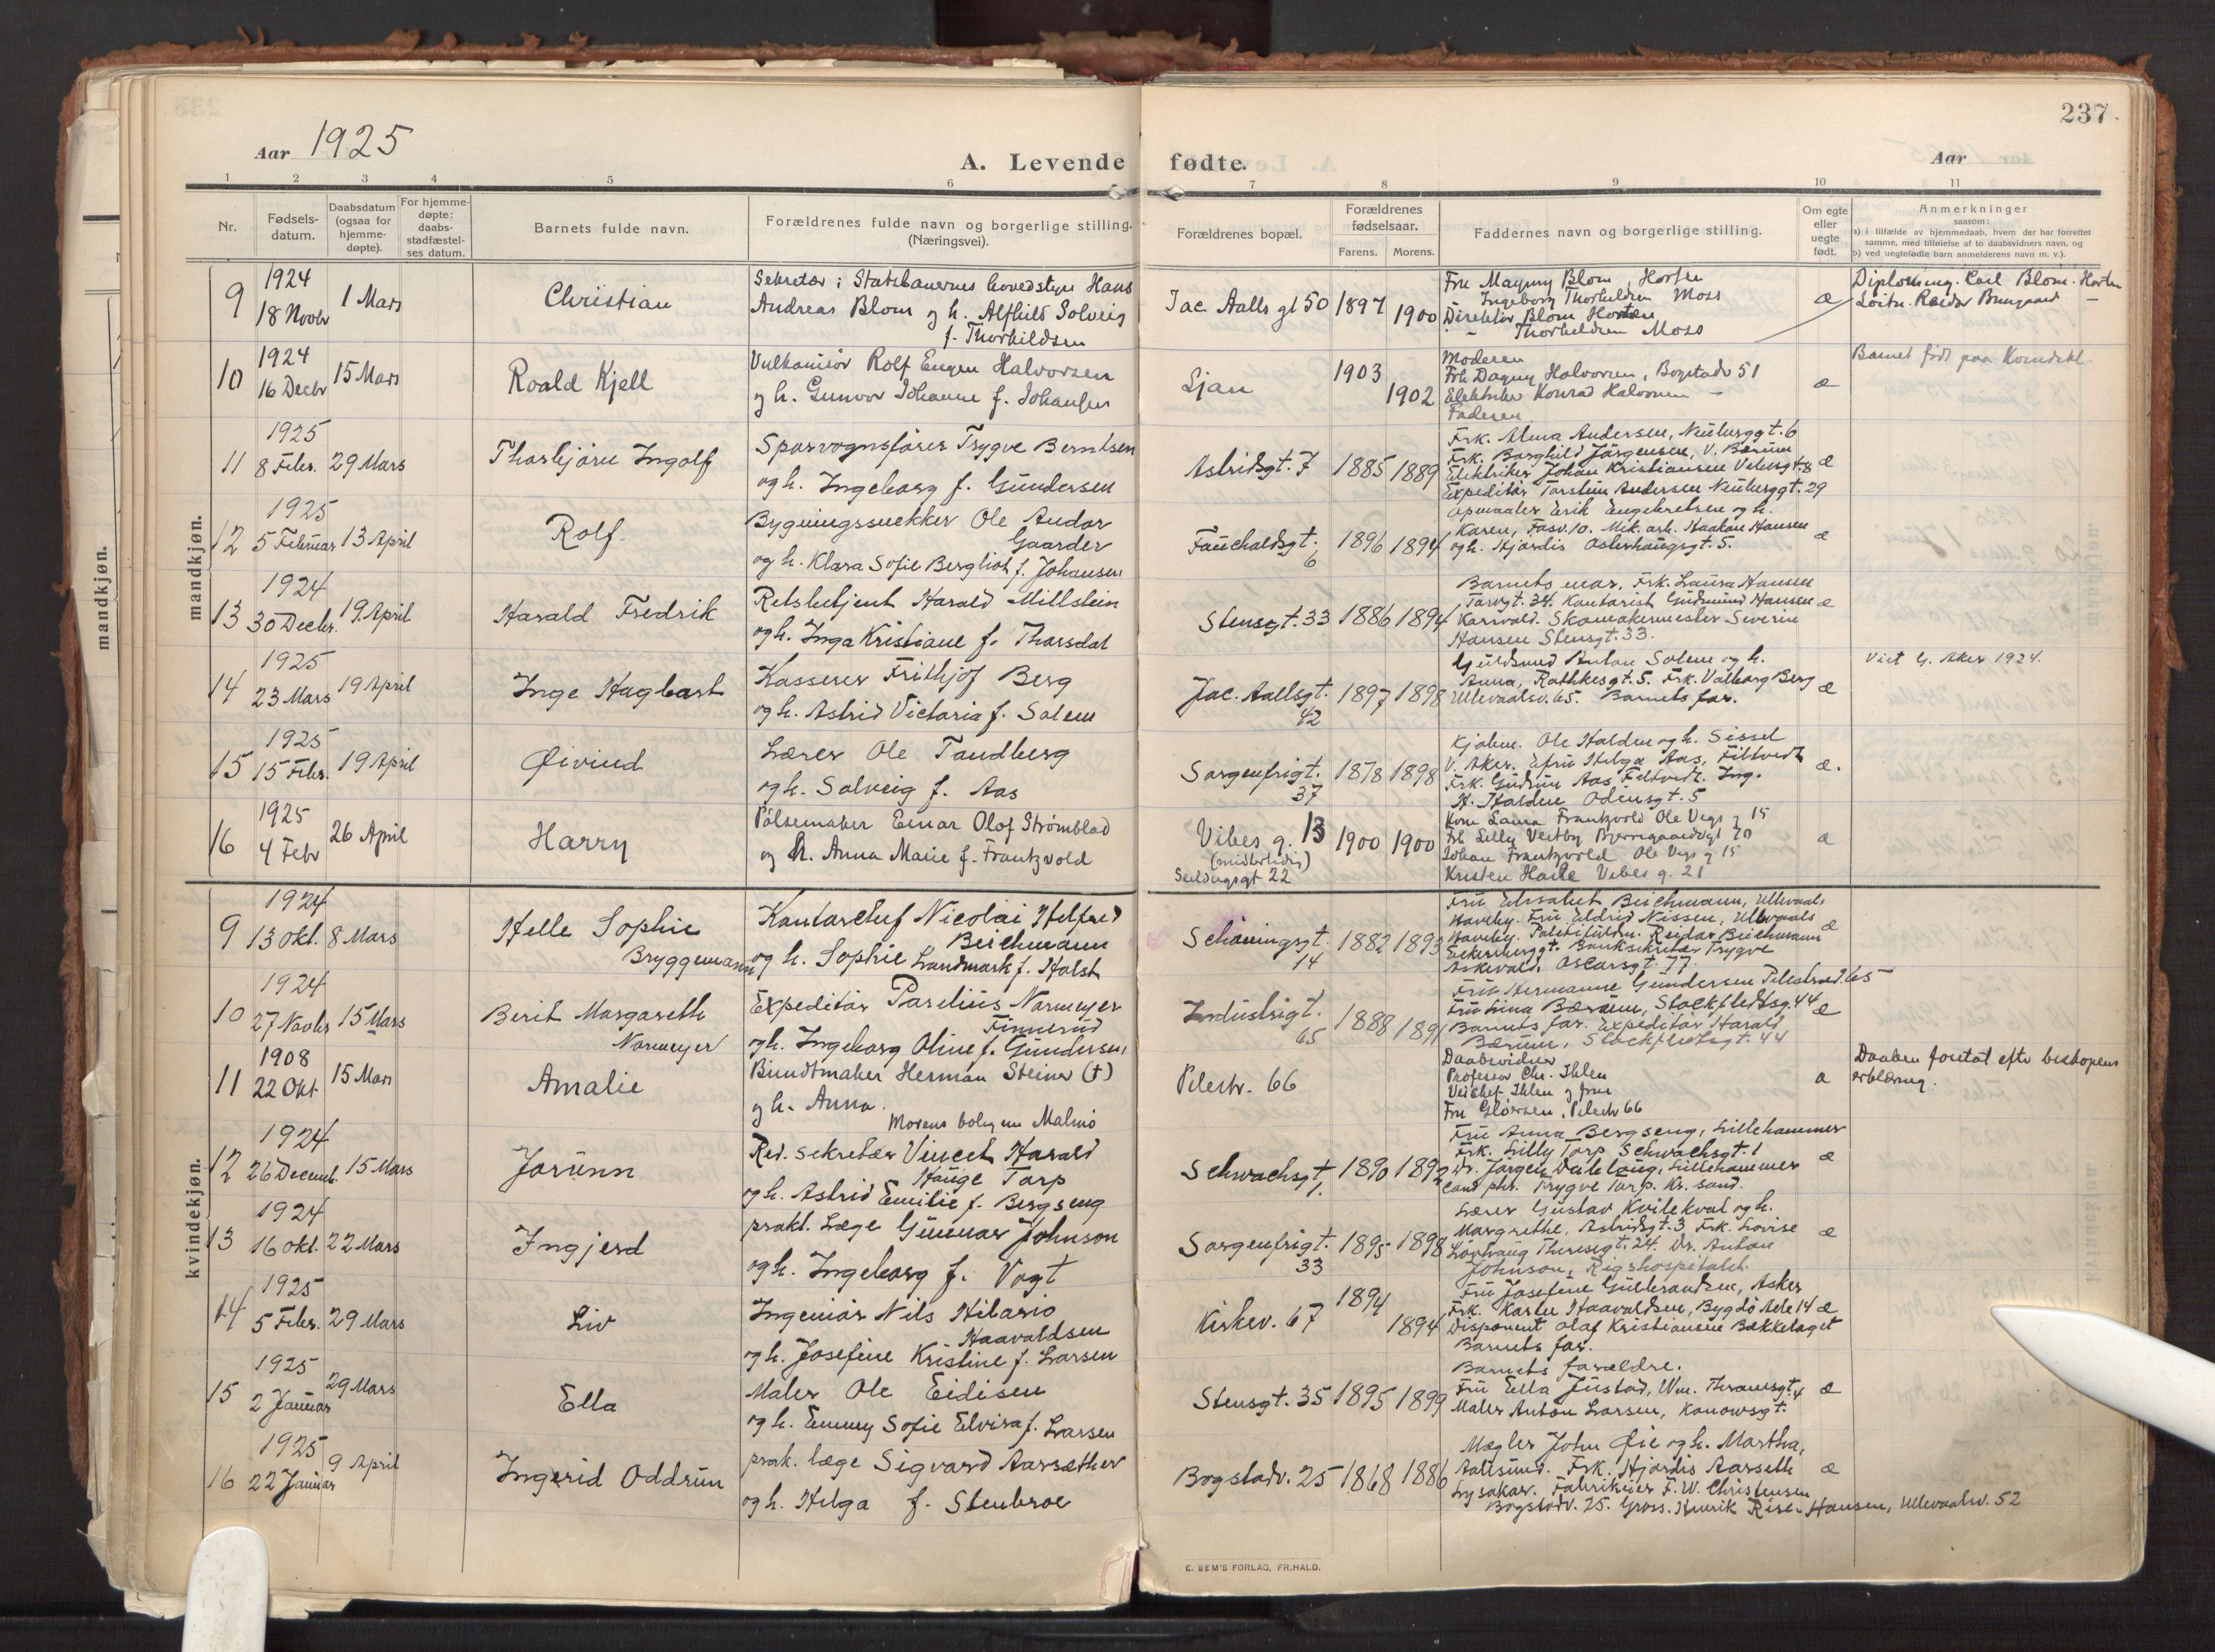 237.
Aar 1925
A. Levende fødte.
Aar
1 2 3 4 5 6 7 8 9 10 11
Nr.
Fødsels-
datum.
Daabsdatum
(ogsaa for
hjemme-
døpte).
For hjemme-
døpte:
daabs-
stadfæstel-
ses datum.
Barnets fulde navn.
Forældrenes fulde navn og borgerlige stilling.
(Næringsvei).
Forældrenes bopæl.
Forældrenes
fødselsaar.
Farens. Morens.
Faddernes navn og borgerlige stilling.
Om egte
eller
uegte
født.
Anmerkninger
saasom:
a) i tilfælde av hjemmedaab, hvem der har forrettet
samme, med tilføielse af to daabsvidners navn, og
b) ved uegtefødte barn anmelderens navn m. v.).
mandkjøn.
mandkjøn.
9
1924
18 Novbr
1 Mars
Christian
Sekretær i Statsbanernes hovedstyre Hans
Andreas Blom og h. Alfhild Solveig
f. Thorkildsen
Jac Aalls gt 50
1897
1900
Fru Magny Blom, Horten
Ingeborg Thorkildsen Moss
Direktør Blom Horten
Thorkildsen Moss
æ
Diploming. Carl Blom. Horten
Løitn. Reidar
10
1924
16 Decbr
15 Mars
Roald Kjell
Vulkanisør Rolf Eugen Halvorsen
og h. Gunvor Johanne f. Johansen
Ljan
1903
1902
Moderen
Frk Dagny Halvorsen, Bogstadv 51
Elektriker Konrad Halvorsen
Faderen
æ
Barnet født paa
11
1925
8 Febr.
29 Mars
Thorbjørn Ingolf
Sporvognsfører Trygve Berntsen
og h. Ingeborg f. Gundersen
Astridsgt. 7
1885
1889
Frk. Alma Andersen, Neuberggt. 6
Frk. Borghild Jørgensen, V. Bærum
Elektriker Johan Kristiansen
Expeditør Torstein Andersen Neuberggt. 29
æ
12
1925
5 Februar
13 April
Rolf.
Bygningssnekker Ole Andor
Gaarder
og h. Klara Sofie Bergliot f. Johansen
Fauchaldsgt.
6
1896
1894
Opmaaler Erik Engebretsen og h.
Karen, Fasv. 10. Mek. arb. Haakon Hansen
og h. Hjørdis Osterhausgt. 5.
æ
13
1924
30 Decbr.
19. April
Harald Fredrik
Retsbetjent Harald Millstein
og h. Inga Kristiane f. Thorsdal
Stensgt. 33
1886
1894
Barnets mor. Frk. Laura Hansen
Torvgt. 34. Kontorist Gudmund Hansen
Korsvold. Skomakermester Severin
Hansen Stensgt. 33.
æ
14
1925
23 Mars
19 April
Inge Hagbart
Kasserer Frithjof Berg
og h. Astrid Victoria f. Solem
Jac. Aallsgt.
42
1897
1898
Guldsmed Anton Solem og h.
Anna, Rathkesgt. 5. Frk. Valborg Berg
Ullevaalsv. 65. Barnets far.
æ
Viet G. Aker 1924.
15
1925
15 Febr.
19 April
Øivind
Lærer Ole Tandberg
og h. Solveig f. Aas
Sorgenfrigt.
37
1878
1898
Kjøbm. Ole Halden og h. Sissel
V. Aker. Enfru Helga Aas, Filtvedt
Frk. Gudrun Aas Filtvedt. Ing.
H. Halden Odinsgt. 5
æ.
16
1925
4 Febr
26 April
Harry
Pølsemaker Einar Olof Strømblad
og h. Anna Marie f. Frantzvold
Vibes g. 13
(midlertidig)
Seilduksgt 22
1900
1900
Kone Laura Frantzvold Ole Vigs g 15
Frk Lilly Vestby Bjerregaardsgt 70
Johan Frantzvold Ole Vigs g 15
Kristen Vibes g. 21
æ
kvindekjøn.
9
1924
13 Okt.
8 Mars
Helle Sophie
Bryggemann
Kontorchef Nicolai Helfred
Beichmann
og h. Sophie Landmark f. Holst
Schøningsgt.
14
1882
1893
Fru Elisabet Beichmann, Ullevaals
Haveby. Fru Eldrid Nissen, Ullevaals
Haveby. Reidar Beichmann
Eckersbergsgt. Banksekretær Trygve
Askevold, Oscarsgt. 77.
æ
10
1924
27 Novbr
15 Mars
Berit Margarethe
Normeyer
Expeditør Parelius Normeyer
Finnerud
og h. Ingeborg Oline f. Gundersen
Industrigt.
65
1888
1891
Fru Hermanne Gundersen Pilestræd. 65
Fru Lina Bærum, Stockfletsg. 44
Barnets far. Expeditør Harald
Bærum, Stockfletsgt. 44
æ
11
1908
22 Okt
15 Mars
Amalie
Bundtmaker Herman Steiner (†)
og h. Anna.
Morens bolig nu Malmö
Pilestr. 66
Daabsvidner
Professor Chr. Ihlen
Ihlen og frue
Fru Pilestr 66
æ
Daaben foretat efter biskopens
erklæring.
12
1924
26 Decemb.
15 Mars
Jorunn
Red. sekretær Vincent Harald
Hauge Torp
og h. Astrid Emilie f. Bergseng
Schwachsgt.
1.
1890
1892
Fru Anna Bergseng, Lillehammer
Frk. Lilly Torp Schwachsgt. 1
Dr. Jørgen Lillehammer
Cand phil. Trygve Torp. Kr. sand.
æ
13
1924
16 Okt.
22 Mars
Ingjerd
prakt. Læge Gunnar Johnson
og h. Ingeborg f. Vogt
Sorgenfrigt.
33
1895
1898
Lærer Gustav Kvilekval og h.
Margrethe, Astridsgt. 3 Frk. Lovise
Theresgt. 24. Dr. Anton
Johnson, Rigshospitalet.
æ
14
1925
5 Febr.
29 Mars
Liv
Ingeniør Nils Hilario
Haavaldsen
og h. Josefine Kristine f. Larsen
Kirkev. 67
1894
1894
Fru Josefine Gulbrandsen, Asker
Frk. Karen Haavaldsen, Bygdø Alle 14
Disponent Olaf Kristiansen Bækkelaget
Barnets far.
æ
15
1925
2 Januar
29 Mars
Ella
Maler Ole Eidisen
og h. Emmy Sofie Elvira f. Larsen
Stensgt. 35
1895
1899
Barnets forældre.
Fru Ella Justad, Wm. Thranesgt. 4
Maler Anton Larsen, Kanowsgt.
æ
16
1925
22 Januar
9 April
Ingerid Oddrun
prak. læge Sigvard Aarsæther
og h. Helga f. Stenbroe
Bogstadv. 25
1868
1886
Mægler John Øie og h. Martha,
Aalesund. Frk. Hjørdis Aarseth
Lysaker. Fabrikeier F. W. Christensen
Bogstadv. 25. Gross. Henrik Rise-Hansen, Ullevaalsv. 52
æ
E. SEM'S FORLAG, FR.HALD.